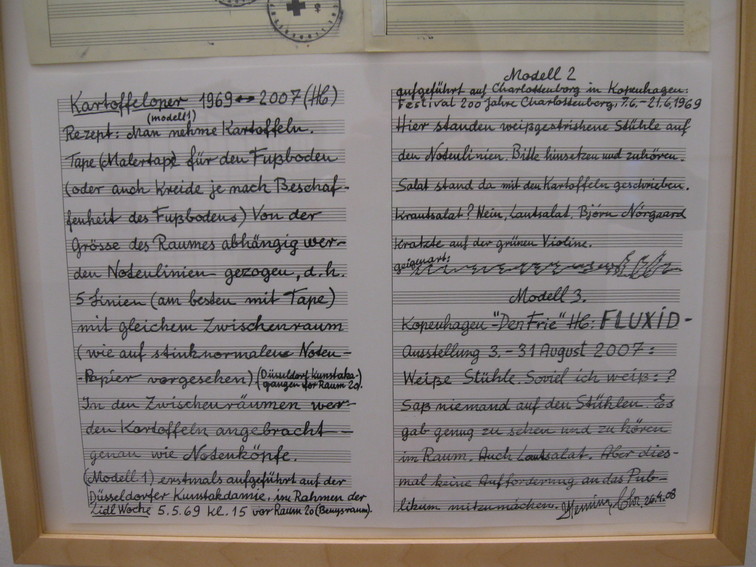 Kartoffeloper 1969 ↔ 2007 (HC)
(modell 1)
Rezept: Man nehme Kartoffeln.
Tape (Malertape) für den Fußboden
(oder auch Kreide je nach Beschaf-
fenheit des Fußbodens) Von der
Grösse des Raumes abhängig wer-
den Notenlinien gezogen, d.h.
5 Linien (am besten mit Tape)
mit gleichem Zwischenraum
(wie auf stinknormalem Noten-
-Papier vorgesehen) (Düsseldorf Kunstaka-
gangen vor Raum 20).
In den Zwischenräumen wer-
den Kartoffeln angebracht
genau wie Notenköpfe.
(Modell 1) erstmals aufgeführt auf der
Düsseldorfer Kunstakdamie, im Rahmen der
Lidl Woche 5.5.69 kl. 15 vor Raum 20 (Beuysraum).
Modell 2
aufgeführt auf Charlottenborg in Kopenhagen:
Festival 200 Jahre Charlottenborg, 7.6.–21.6.1969
Hier standen weißgestrichene Stühle auf
den Notenlinien. Bitte hinsetzen und zuhören.
Salat stand da mit den Kartoffeln geschrieben.
Krautsalat? Nein, Lautsalat. Björn Nörgaard
kratzte auf der grünen Violine.
geigenart:
Modell 3.
Kopenhagen -"Den Frie" HC: FLUXID-
Ausstellung 3.-31 August 2007:
Weiße Stühle. Soviel ich weiß: ?
Saß niemand auf den Stühlen. Es
gab genug zu sehen und zu hören
im Raum. Auch Lautsalat. Aber dies-
mal keine Aufforderung an das Pub-
likum mitzumachen. Henning Chr. 26.4.08